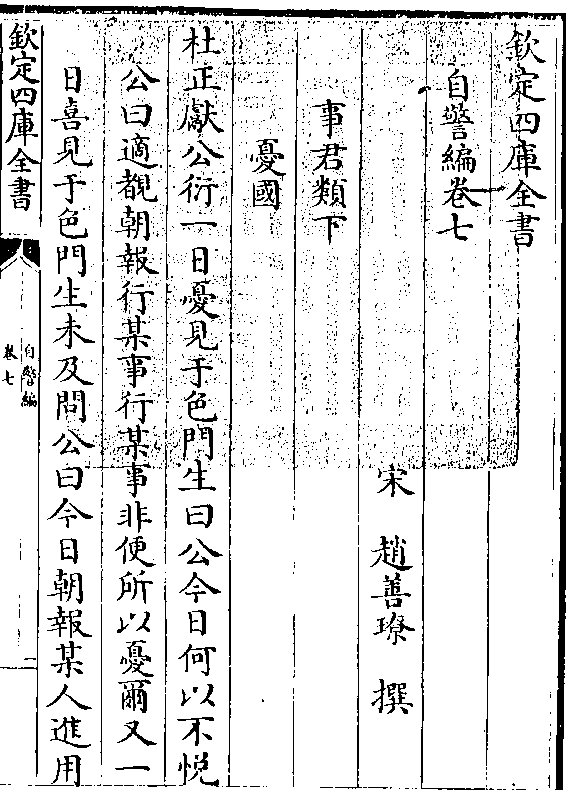 欽定四庫全書
自警編卷七
宋 趙善璙 撰
事君類下
憂國
杜正獻公衍一日憂見于色門生曰公今日何以不悅
公曰適覩朝報行某事行某事非便所以憂爾又一
日喜見于色門生未及問公曰今日朝報某人進用
欽定四庫全書
自警編
卷七
一